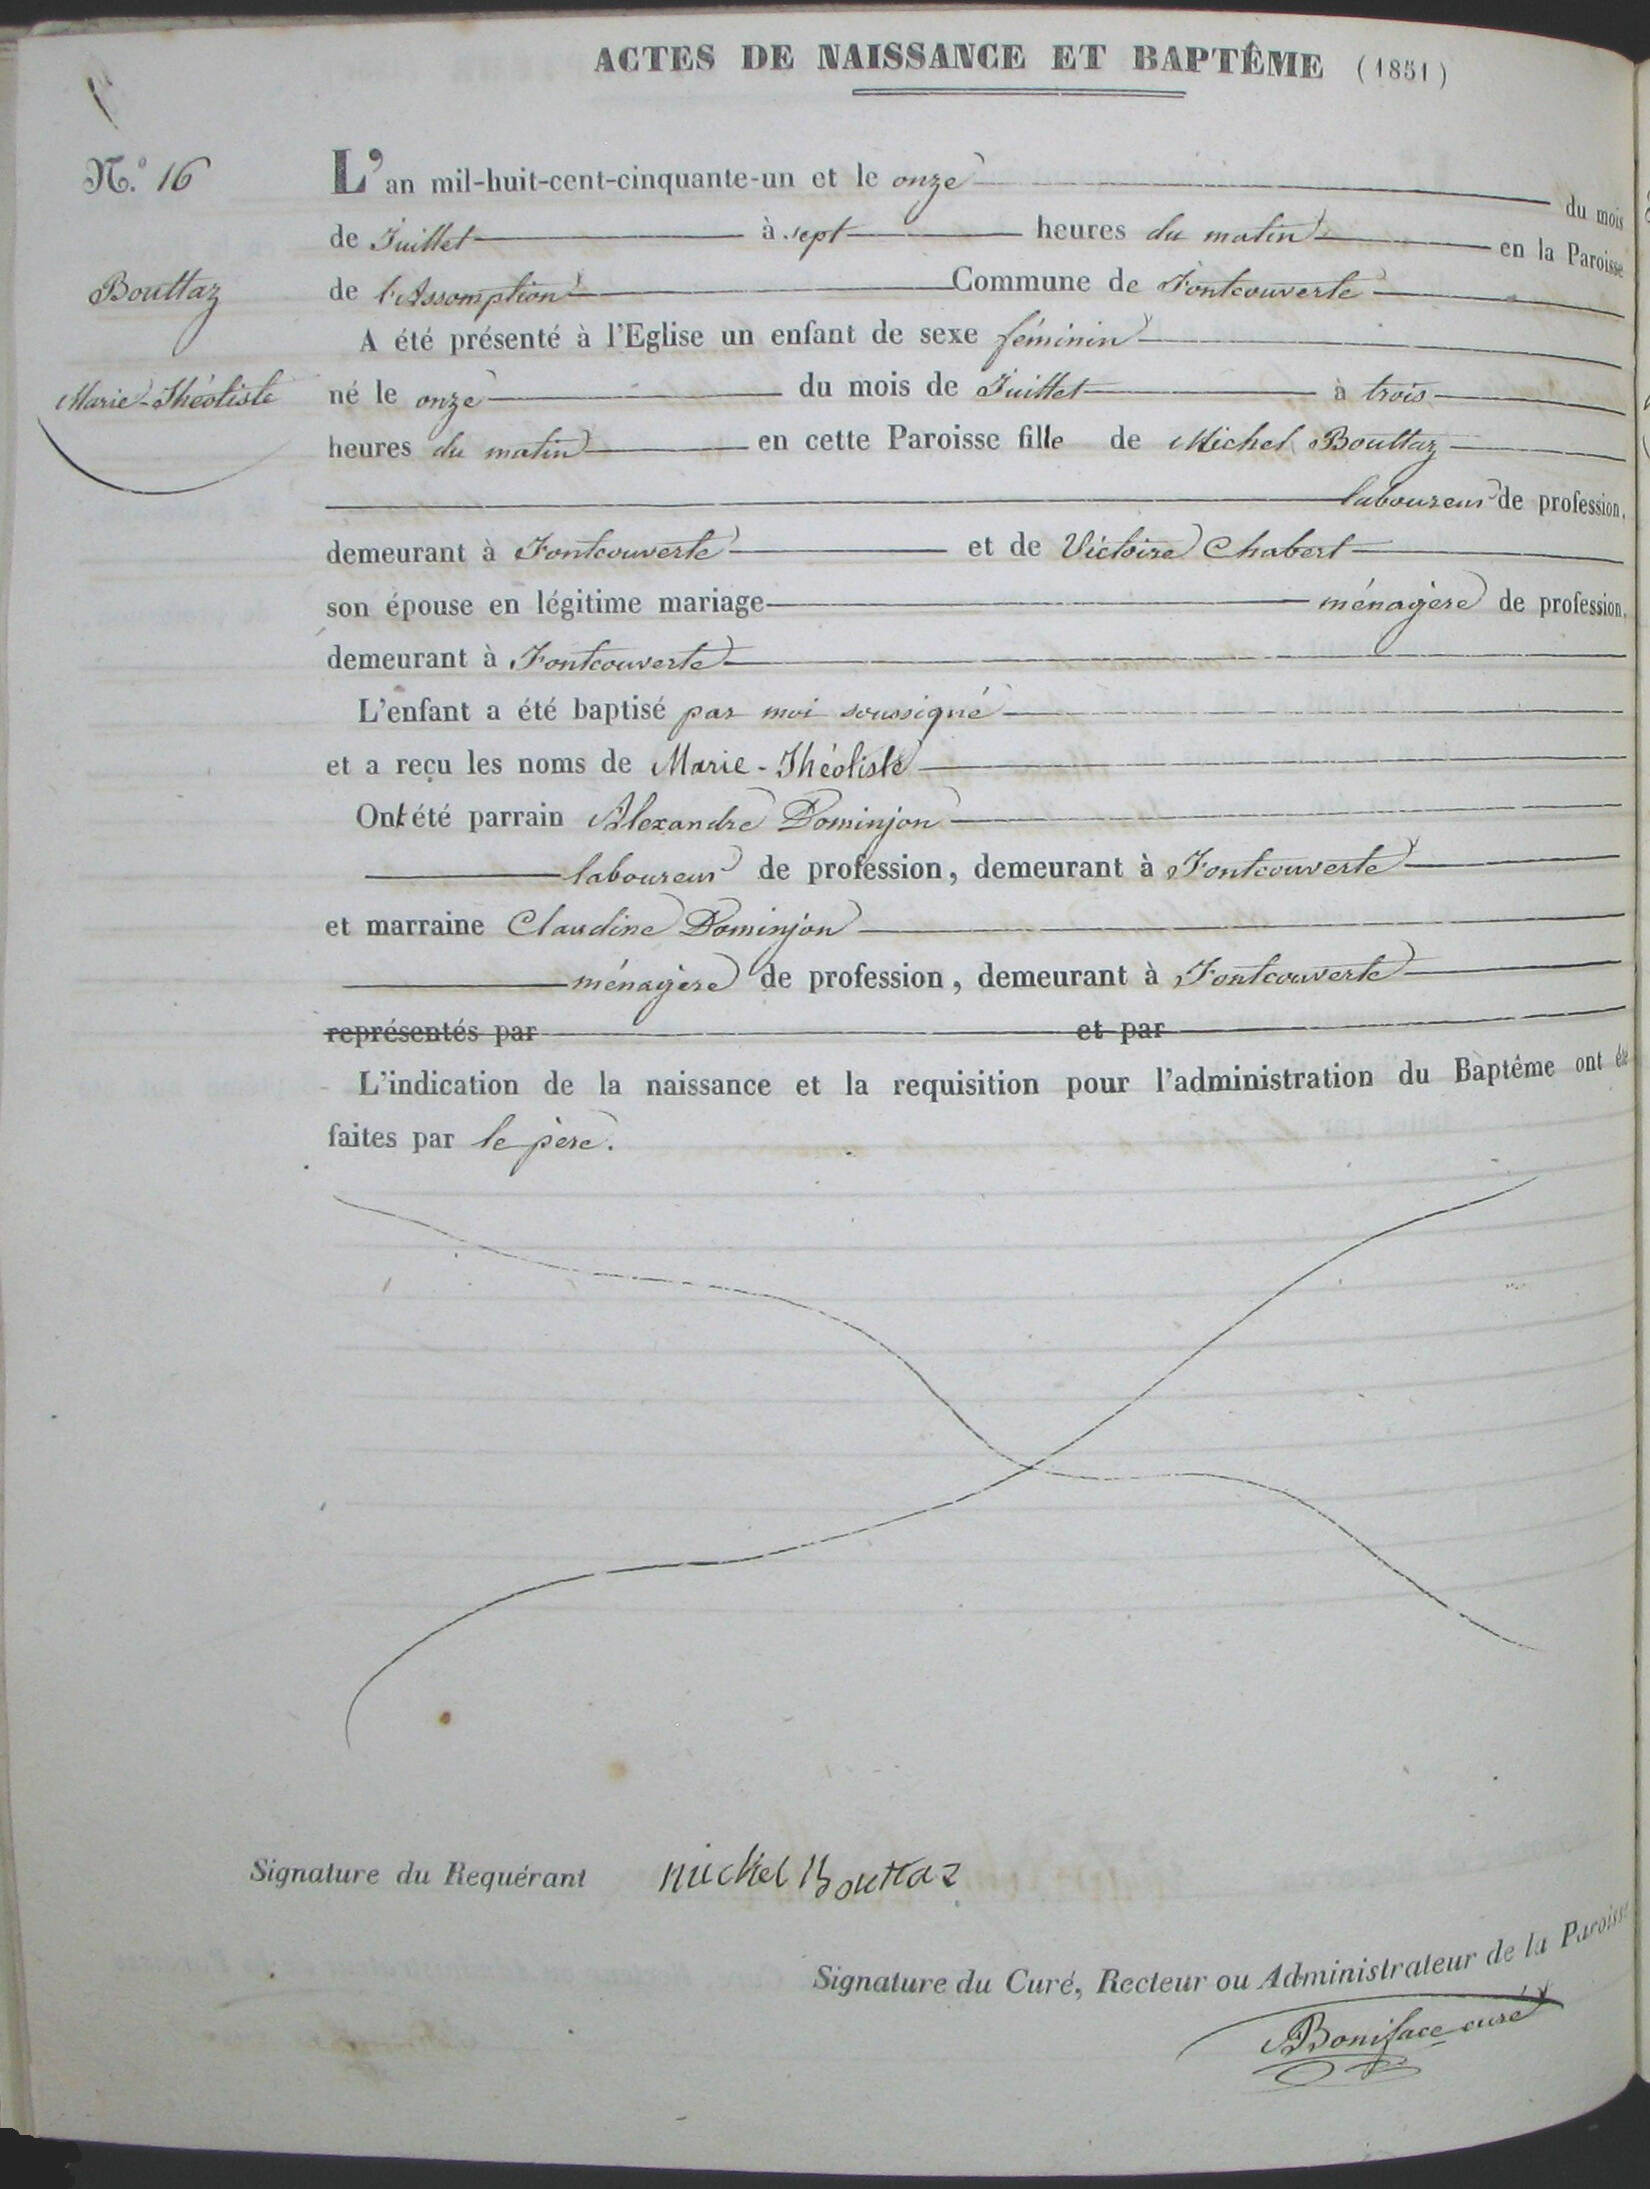 ACTES DE NAISSANCE ET BAPTÊME (1851)
N.° 16
L'an mil-huit-cent-cinquante-un et le onze du mois
de Juillet à sept heures du matin en la Paroisse
Bouttaz
de l'Assomption Commune de Fontcouverte
A été présenté à l'Eglise un enfant de sexe féminin
Marie-Théotiste
né le onze du mois de Juillet à trois
heures du matin en cette Paroisse fille de Michel Bouttaz
laboureur de profession,
demeurant à Fontcouverte et de Victoire Chabert
son épouse en légitime mariage ménagère de profession,
demeurant à Fontcouverte
L'enfant a été baptisé par moi soussigné
et a reçu les noms de Marie-Théotiste
Ont été parrain Alexandre Dominjon
laboureur de profession, demeurant à Fontcouverte
et marraine Claudine Dominjon
ménagère de profession, demeurant à Fontcouverte
représentés par et par
L'indication de la naissance et la requisition pour l'administration du Baptême ont été
faites par le père.
Signature du Requérant Michel Bouttaz
Signature du Curé, Recteur ou Administrateur de la Paroisse
Boniface curé